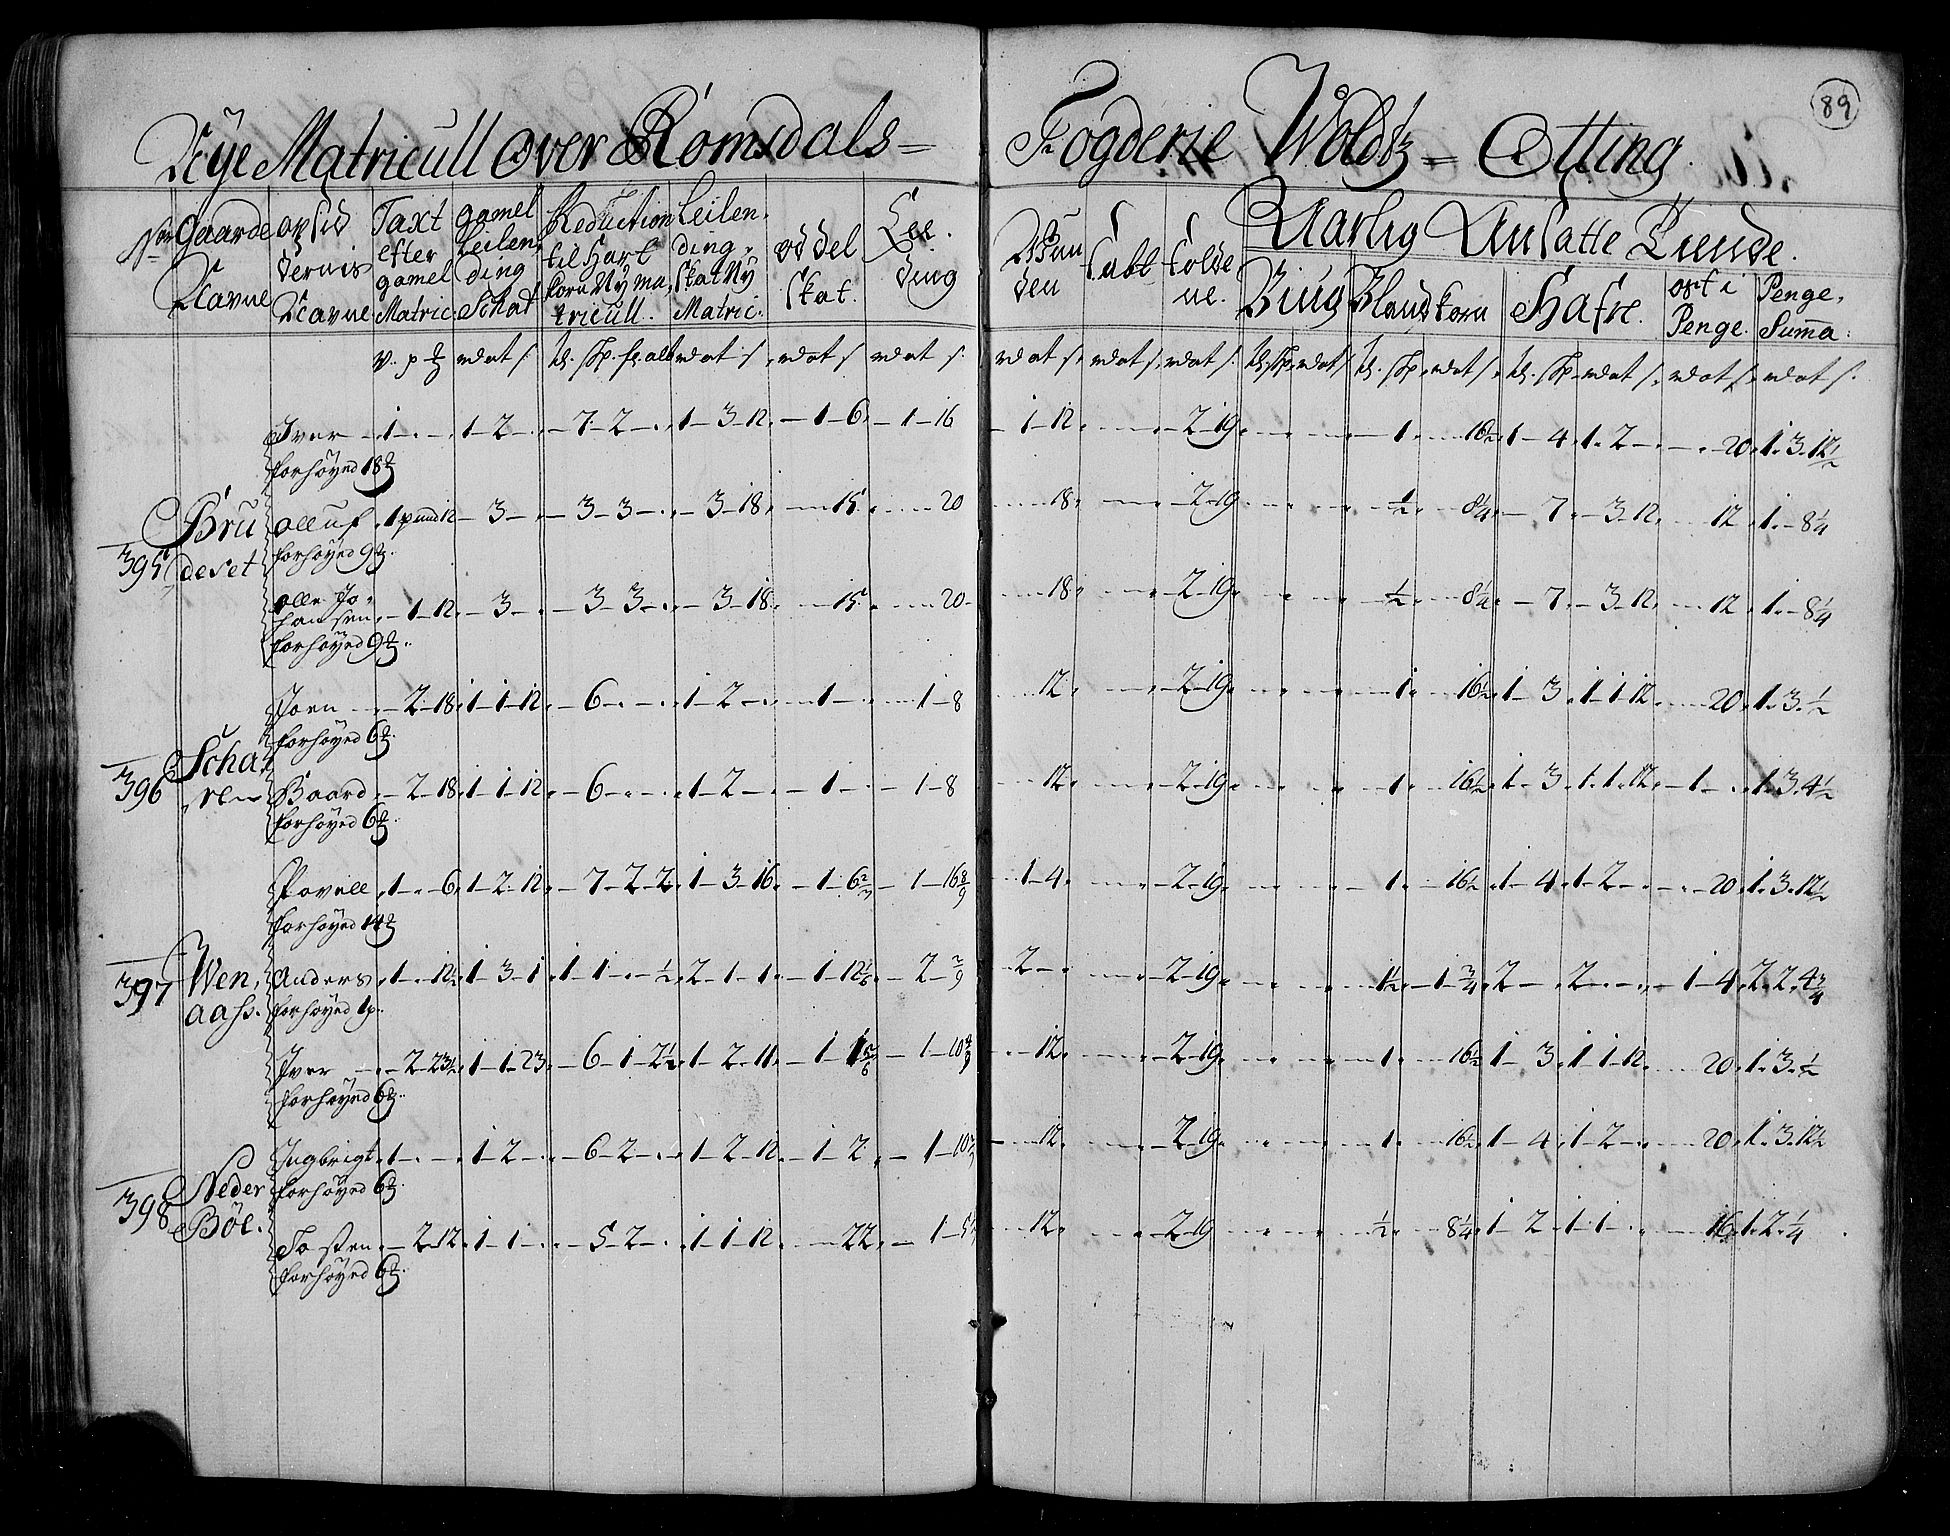 Nye Matricull over Romsdals = Fogderie Woldtz = Otting.
89
No Gaarde Navne
opsid dernis Navne
Taxt efter gamel Matric:
gamel Leilen ding Schat
Reduction til Hart korn Ny ma, tricull.
Leilen, ding, Skat Ny Matric:
oddel Skat.
Lee. ding
Aarlig Ansatte Tiende.
Biug Blandkorn Hafre.
ost i Penge.
Penge, Summa:
Iver 1 1-2 7-2 1-3-12 1-6 1-16 1-12 2-19 1 16½ 1-4 1-2 20 1-3-12½
forhøyed 18
395 Bru deset
Olluf 1 pund 12 3 3-3 3-18 15 20 18 2-19 ½ 8¼ 7 3-12 12 1-8¼
forhøyed 9
Olle Jo, hansen 1-12 3 3-3 3-18 15 20 18 2-19 ½ 8¼ 7 3-12 12 1-8¼
forhøyed 9
Joen 2-18 1-1-12 6 1-2 1 1-8 12 2-19 1 16½ 1-3 1-1-12 20 1-3-½
forhøyed 6
396
Baard 2-18 1-1-12 6 1-2 1 1-8 12 2-19 1 16½ 1-3 1-1-12 1 1-3-4½
forhøyed 6
Povell 1-6 1-2-12 7-2-2 1-3-16 1-6⅔ 1-16 8/9 1-4 2-19 1 16½ 1-4 1-2 20 1-3-12½
forhøyed 14
397 Wen, aass.
Anders 1-12½ 1-3-1 1-1-½ 2-1-1 1-12⅙ 2-2/9 2 2-19 1½ 1-¾ 2 2 1-4 2-2-4¾
forhøyed 1p.
Iver 2-23½ 1-1-23 6-1-2½ 1-2-11 1-1⅚ 1-10 4/9 12 2-19 1 16½ 1-3 1-1-12 20 1-3-½
forhøyed 6
398 Neder Böe.
Ingbrigt 1 1-2 6-2 1-2-12 1-2 1-10⅔ 12 2-19 1 16½ 1-4 1-2 20 1-3-12½
forhøyed 6
Tosten 2-12 1-1 5-2 1-1-12 22 1-5 12 2-19 ½ 8¼ 1-2 1-1 16 1-2-¼
forhøyed 6